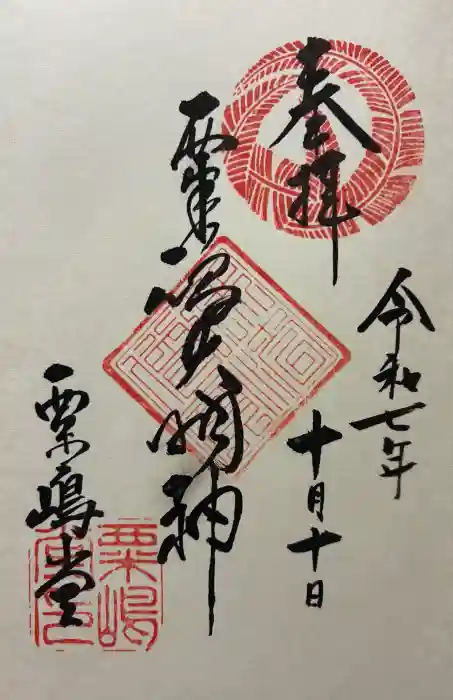 奉拝
令和七年
十月十日
粟 明神
粟嶋堂
粟嶋
堂印